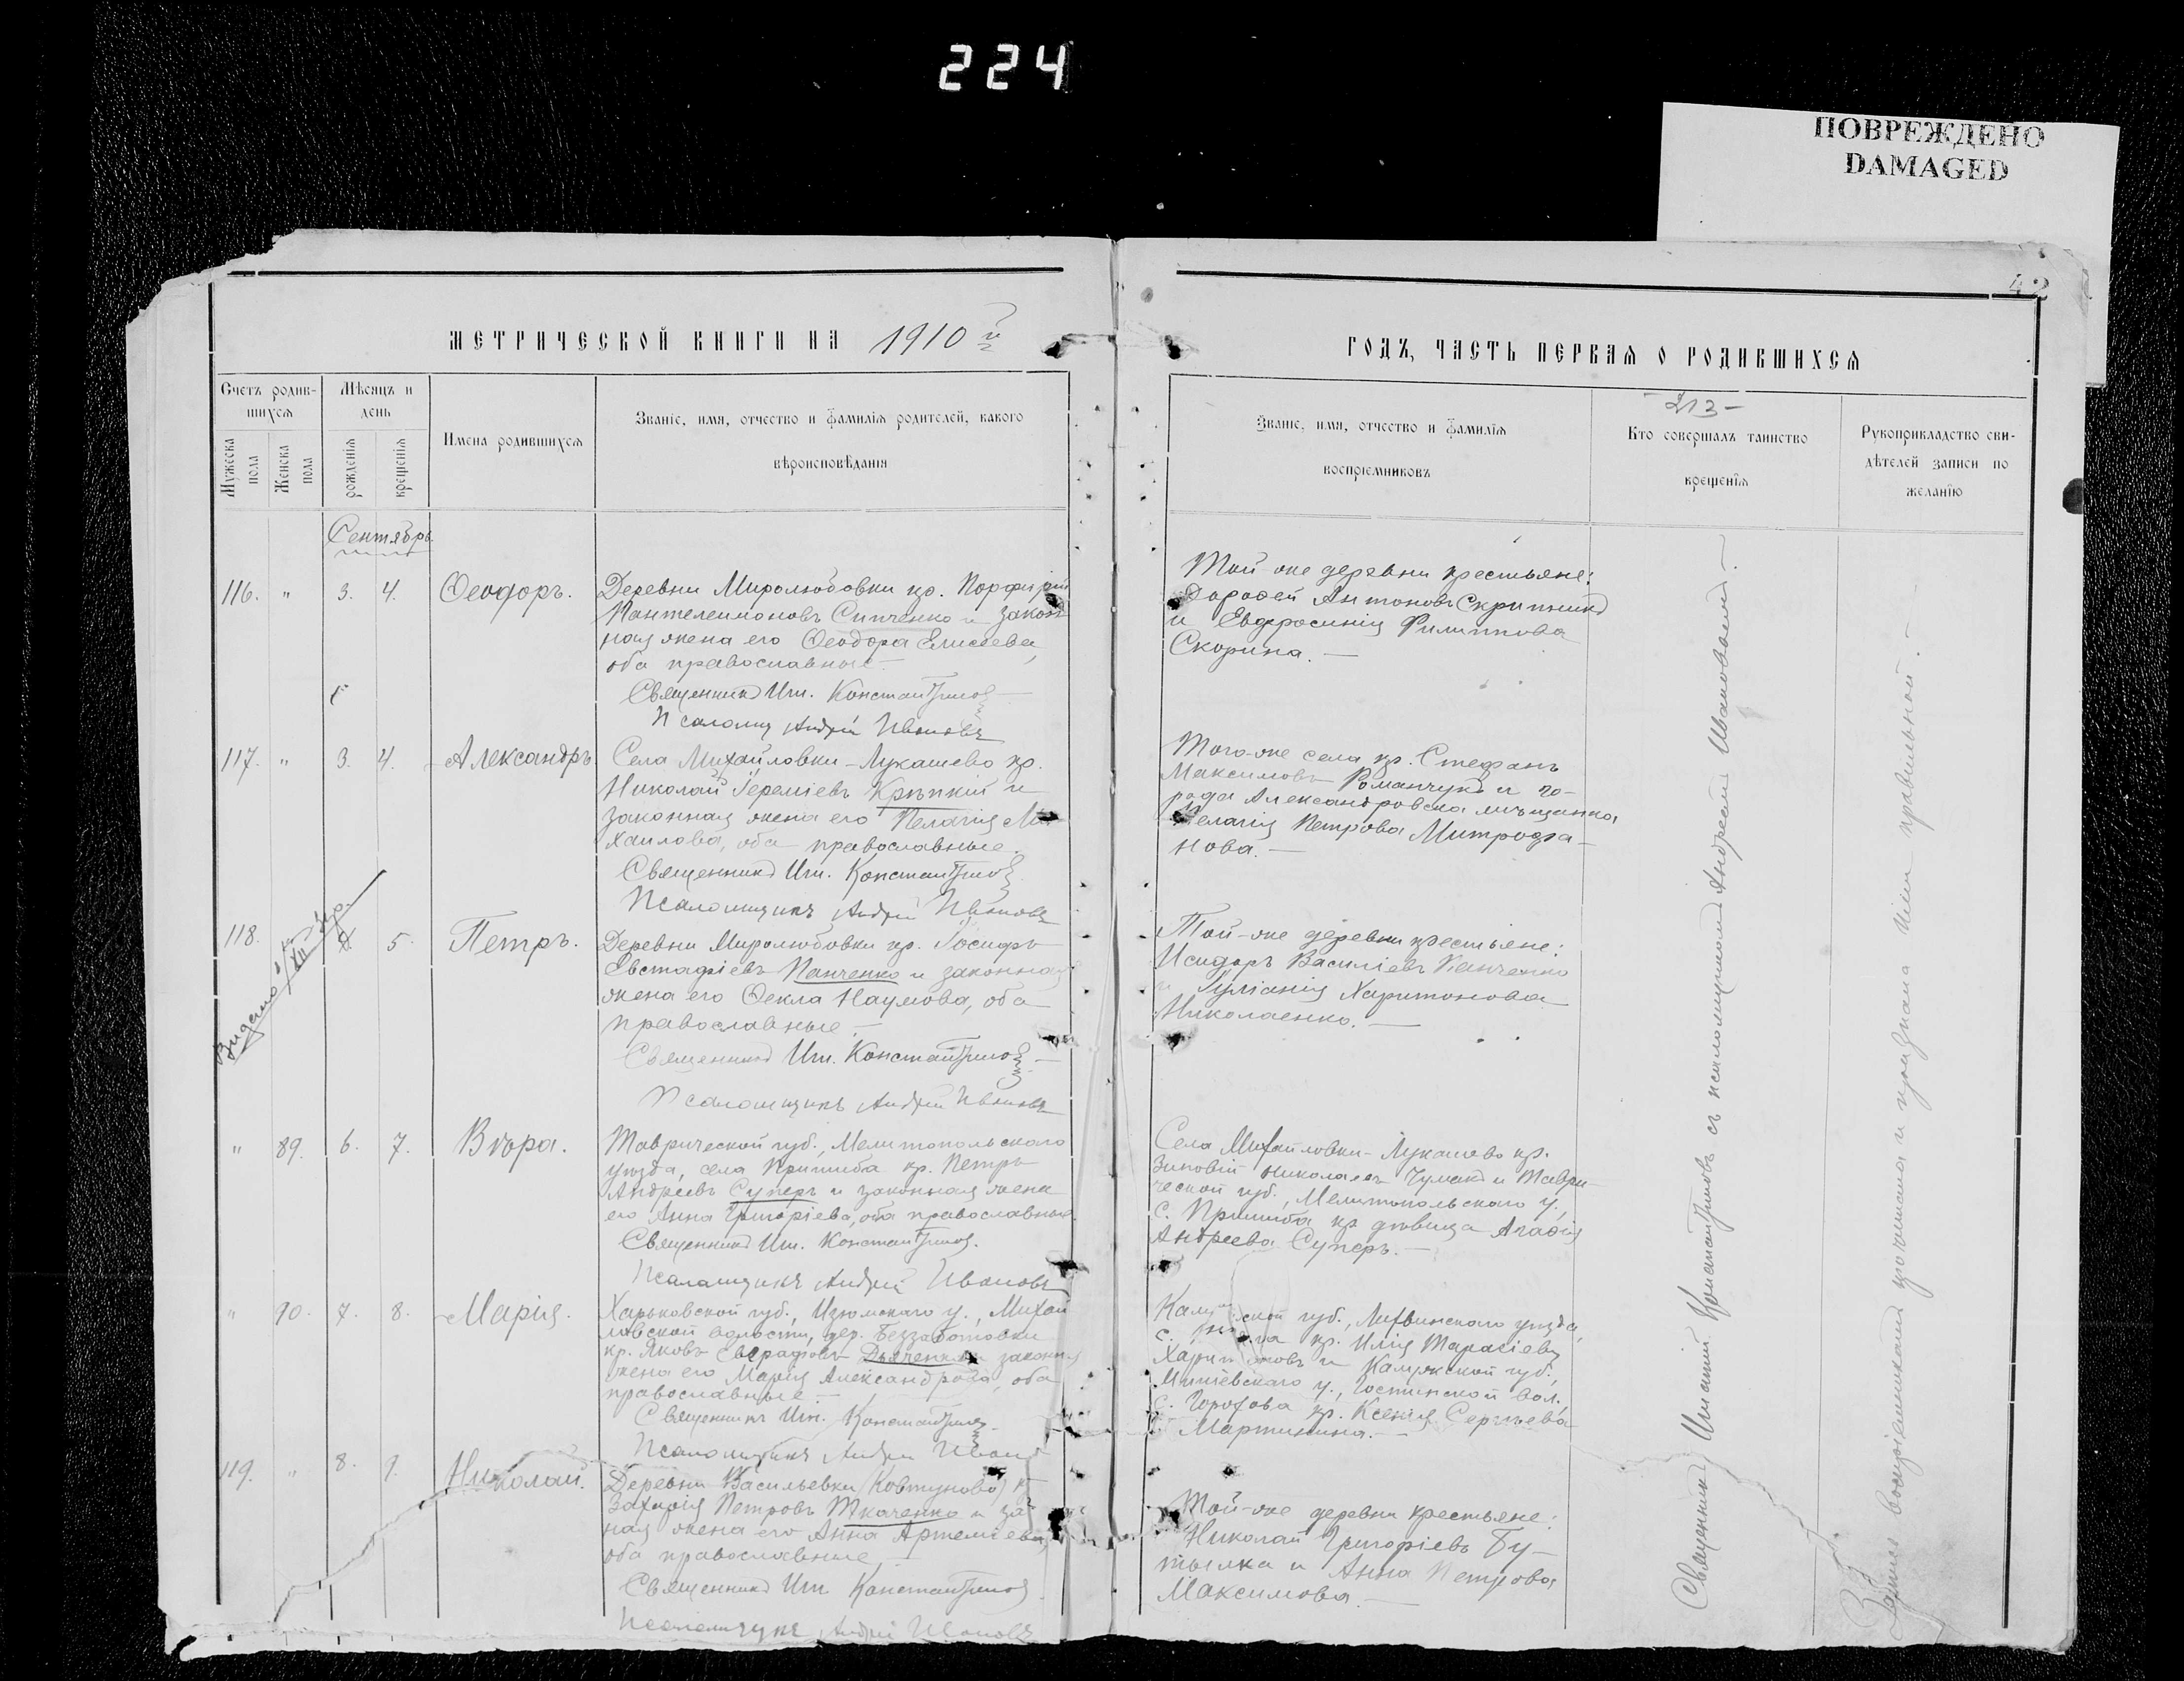 224
ПОВРЕЖДЕНО
DAMAGED
42
МЕТРИЧЕСКОЙ КНИГИ НА 1910 й
ГОДЪ, ЧАСТЬ ПЕРВАЯ О РОДИВШИХСЯ
Счетъ родив-
шихся
Мѣсяцъ и
день
Мужеска
пола
Женска
пола
рожденія
крещенія
Имена родившихся
Званіе, имя, отчество и фамилія родителей, какого
вѣроисповѣданія
Званіе, имя, отчество и фамилія
воспріемниковъ
- 213 -
Кто совершалъ таинство
крещенія
Рукоприкладство сви-
дѣтелей записи по
желанію
Сентябрь
116. " 3. 4. Ѳеодоръ.
Деревни Миролюбовки кр. Порфирій
Пантелеимоновъ Сипченко и закон
ная жена его Ѳеодора Елисеева,
оба православные.
Священникъ Иг. Константинов
Псаломщ Андрій Ивановъ
Той-же деревни крестьяне:
Дорофей Антоновъ Скрипникъ
и Евфросинія Филиппова
Скорина. —
117. " 3. 4. Александръ
Села Михайловки-Лукашево кр.
Николай Іереміевъ Крѣпкій и
законная жена его Пелагія Ми
хаилова, оба православные.
Священникъ Иг. Константинов
Псаломщикъ Андрій Ивановъ
Того-же села кр. Стефанъ
Максимовъ Романчукъ и го-
рода Александровска мѣщанка
Пелагія Петрова Митрофа-
нова. —
118. 5. Петръ.
Видано
Деревни Миролюбовки кр. Іосифъ
Евстафіевъ Панченко и законная
жена его Ѳекла Наумова, оба
православные. —
Священникъ Иг. Константинов
Псаломщикъ Андрій Ивановъ
Той-же деревни крестьяне:
Исидоръ Василіевъ Панченко
и Іуліанія Харитонова
Николаенко. —
" 89. 6. 7. Вѣра.
Таврической губ., Мелитопольскаго
уѣзда, села Пришиба кр. Петръ
Андреевъ Суперъ и законная жена
его Анна Григоріева, оба православные.
Священникъ Иг. Константинов.
Псаломщикъ Андрій Ивановъ
Села Михайловки-Лукашево кр.
Зиновій Николаевъ Чумакъ и Таври-
ческой губ., Мелитопольскаго у.,
с. Пришиба кр дѣвица Агафія
Андреева Суперъ. —
" 90. 7. 8. Марія.
Харьковской губ., Изюмскаго у., Михай
ловской волости, дер. Беззаботовки
кр. Яковъ Дьяченко и законная
жена его Марія Александрова, оба
православные —
Священникъ Иг. Константинов
Псаломщикъ Андрій Иванов
ской губ., Лихвинскаго уѣзда,
с. кр. Илія Тарасіевъ
Харитоновъ и Калужской губ.,
у., вол.,
с. Горохова кр. Ксенія Сергѣева
Мартинина. —
119. " 8. 9. Николай.
Деревни Васильевки (Ковтуново) кр
Захарія Петровъ Ткаченко и за
ная жена его Анна Артеміева,
оба православные, —
Священникъ Иг Константинов
Псаломщикъ Андрій Ивановъ
Той-же деревни крестьяне:
Николай Григоріевъ Бу-
тылка и Анна Петрова
Максимова. —
Священникъ Игнатій Константиновъ съ псаломщикомъ Андреемъ Ивановымъ. —